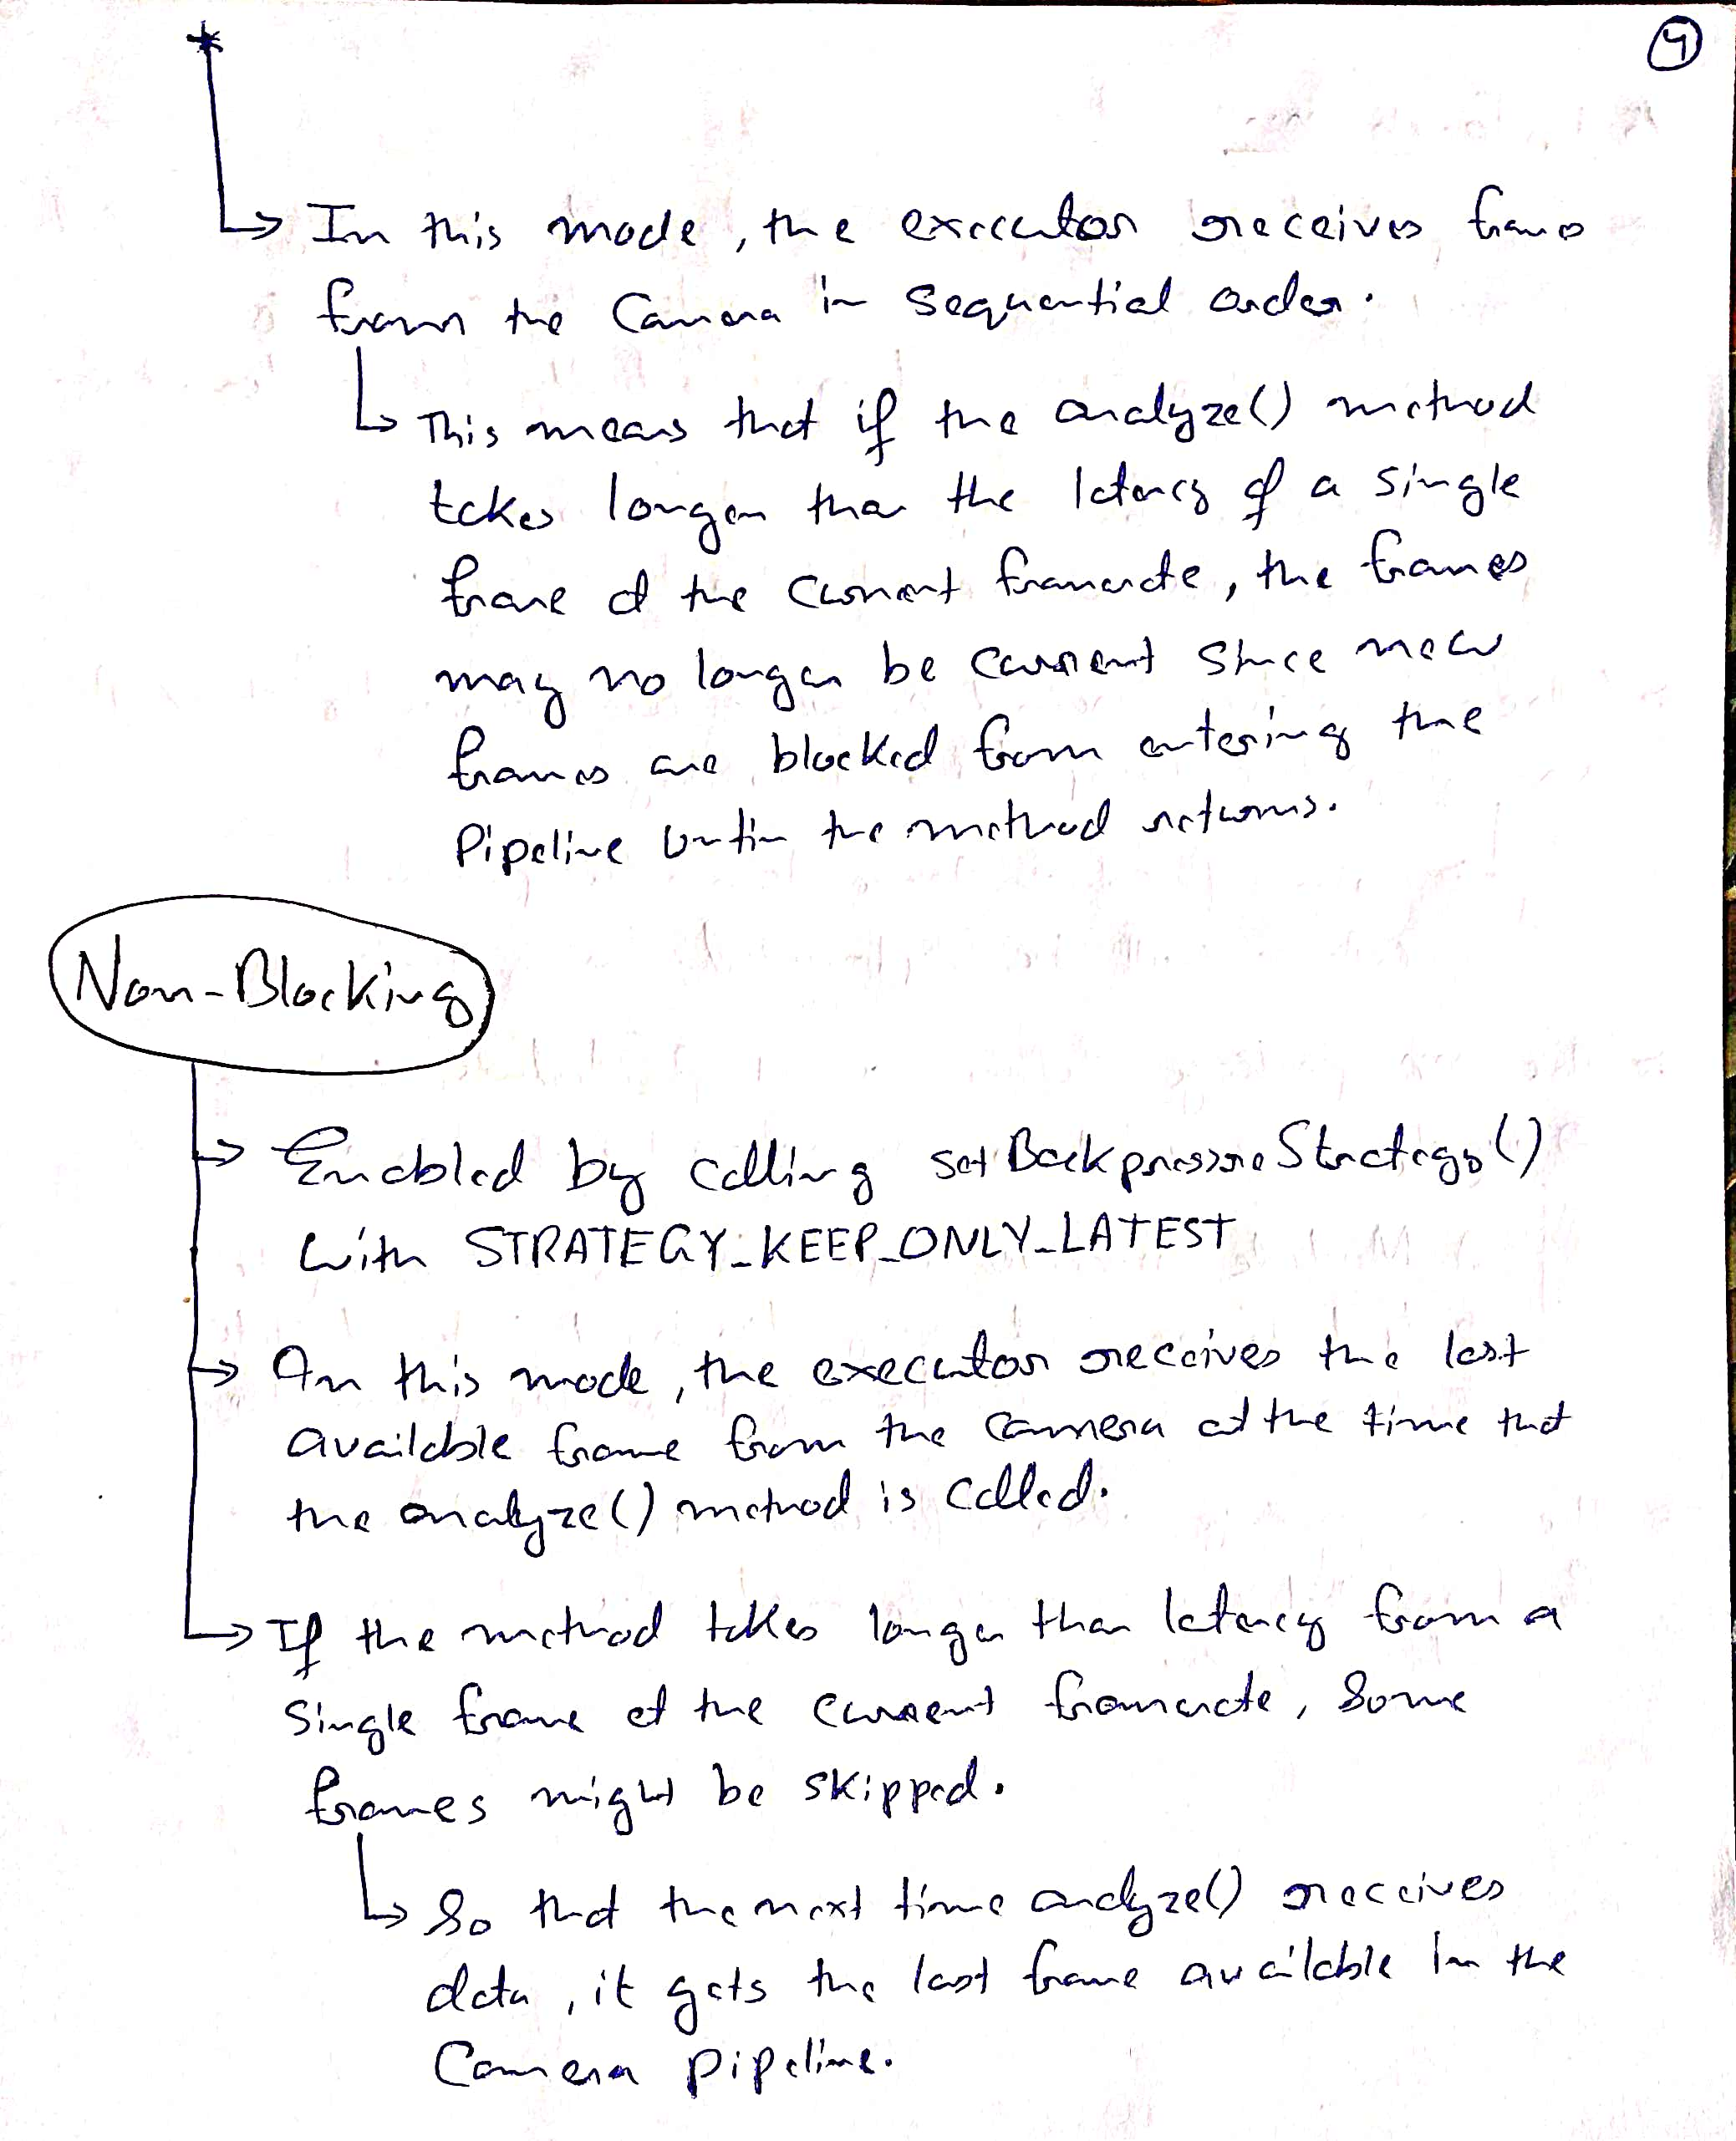 4
In this mode, the executor receives frames
from the Camera in Sequential order.
This means that if the analyze() method
takes longer than the latency of a single
frame at the current framerate, the frames
may no longer be current since new
frames are blocked from entering the
Pipeline until the method returns.
Non-Blocking
Enabled by calling setBackpressureStrategy()
with STRATEGY_KEEP_ONLY_LATEST
In this mode, the executor receives the last
available frame from the camera at the time that
the analyze() method is called.
If the method takes longer than latency from a
Single frame at the current framerate, Some
frames might be skipped.
So that the next time analyze() receives
data, it gets the last frame available in the
Camera pipeline.